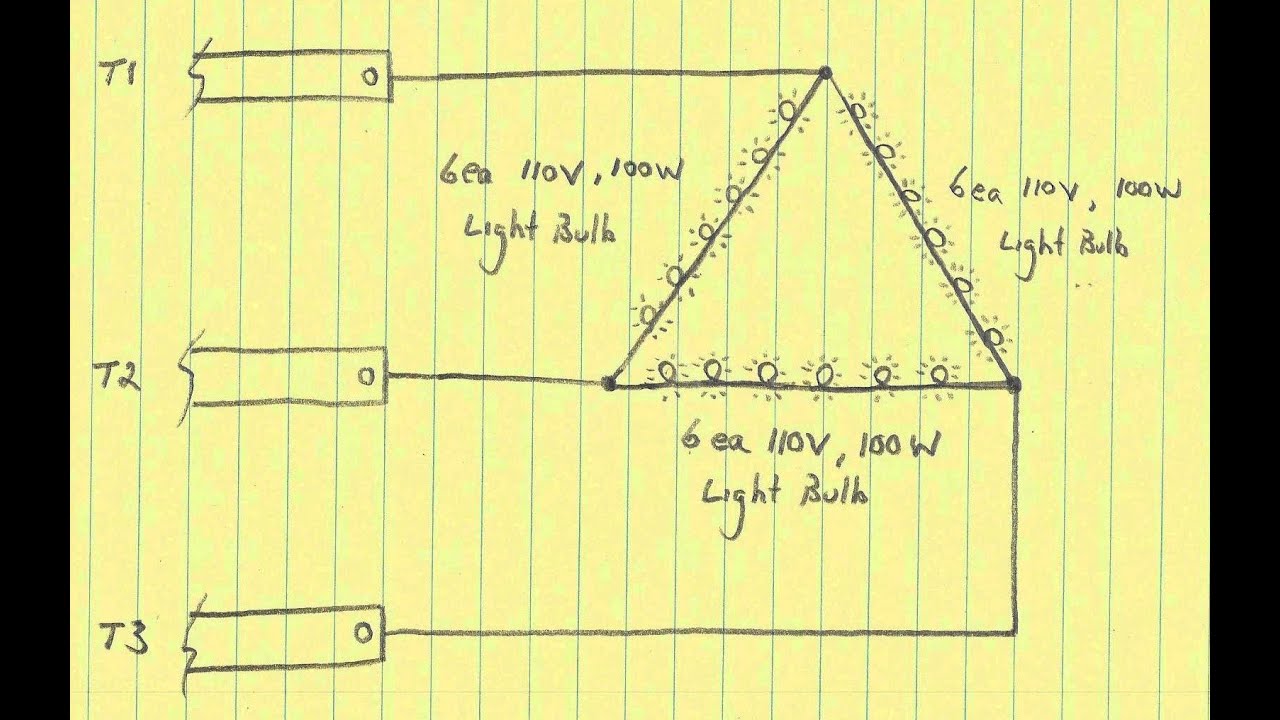 T1
6ea 110V, 100W
Light Bulb
6ea 110V, 100W
Light Bulb
T2
6ea 110V, 100W
Light Bulb
T3